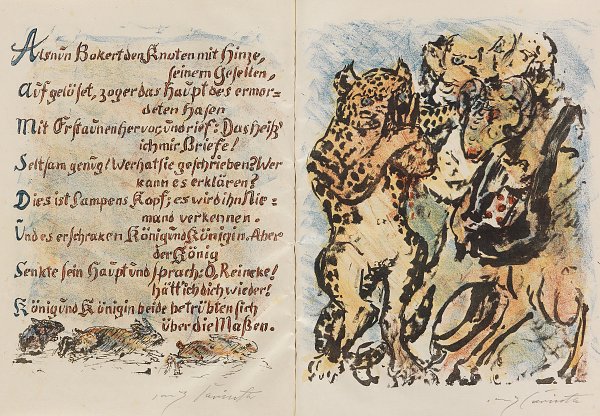 Als nun Bokert den Knoten mit Hinze,
seinem Gesellen,
Aufgelöset, zog er das Haupt des ermor-
deten Hasen
Mit Erstaunen hervor und rief: Das heiß'
ich mir Briefe!
Seltsam genug! Wer hat sie geschrieben? Wer
kann es erklären?
Dies ist Lampens Kopf; es wird ihn Nie-
mand verkennen.
Und es erschraken König und Königin. Aber
der König
Senkte sein Haupt und sprach: O, Reineke!
hätt' ich dich wieder!
König und Königin beide betrübten sich
über die Maßen.
Lovis Corinth
Lovis Corinth